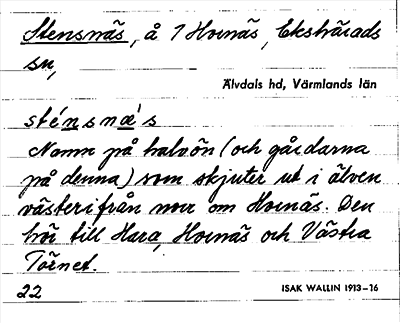 Stensnäs, å 1 Hornäs, Ekshärads
sn,
Älvdals hd, Värmlands län
sté́nsnæ̀s
Namn på halvön (och gårdarna
på denna) som skjuter ut i älven
västerifrån norr om Hornäs. Den
hör till Hara, Hornäs och Västra
Törnet.
22
ISAK WALLIN 1913–16